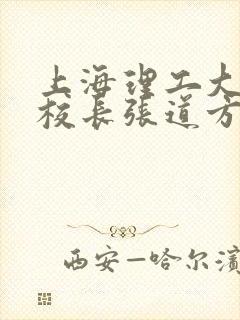 上海理工大
校长张道方
西安—哈尔滨